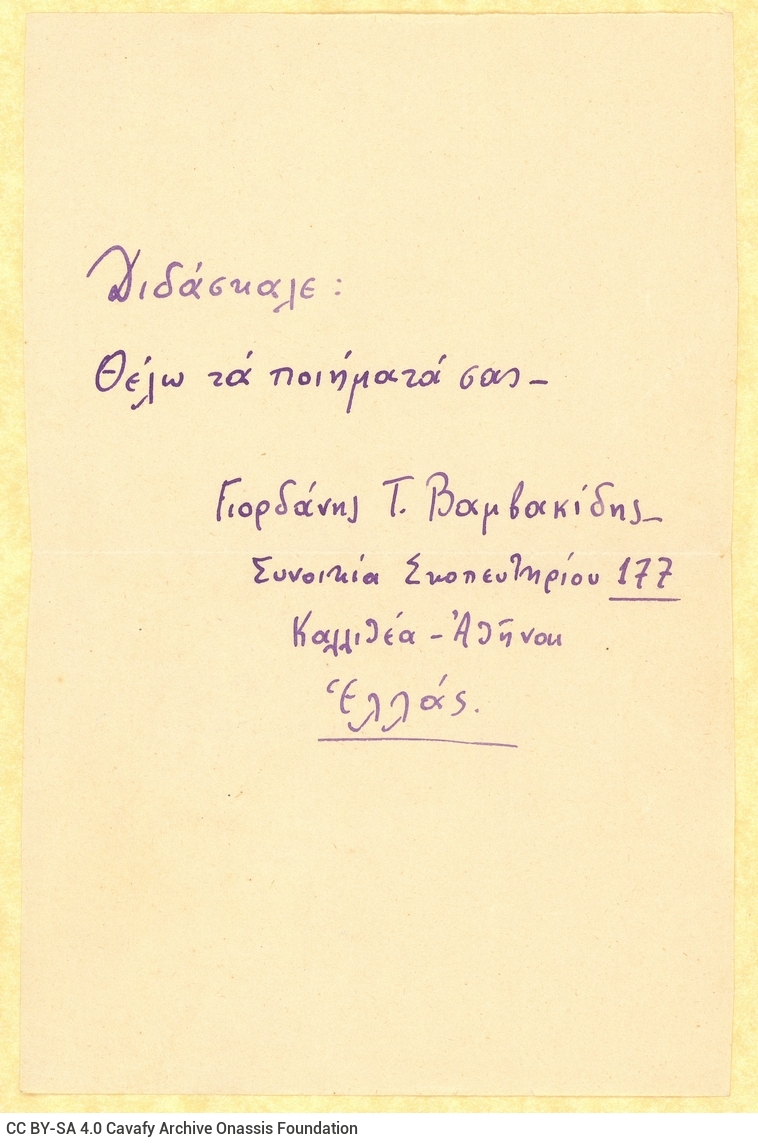 Διδάσκαλε:
Θέλω τά ποιήματά σας_
Γιορδάνης Τ. Βαμβακίδης_
Συνοικία Σκοπευτηρίου 177
Καλλιθέα - Ἀθῆναι
Ἑλλάς.
CC BY-SA 4.0 Cavafy Archive Onassis Foundation